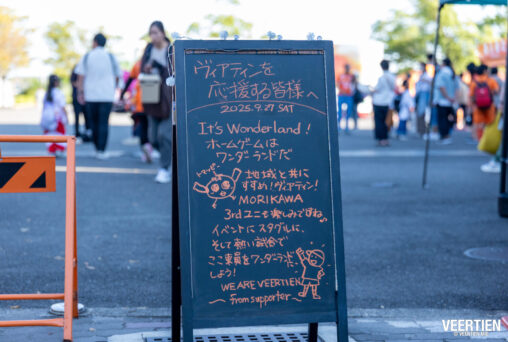 ヴィアティンを
応援する皆様へ
2025.9.27 SAT
It's Wonderland!
ホームゲームは
ワンダーランドだ
地域と共に
すすめ!ヴィアティン!
MORIKAWA
3rdユニも楽しみですね♪
イベントにスタグルに、
そして熱い試合で
ここ東員をワンダーランドに
しよう!
WE ARE VEERTIEN
~from supporter~
VEERTIEN